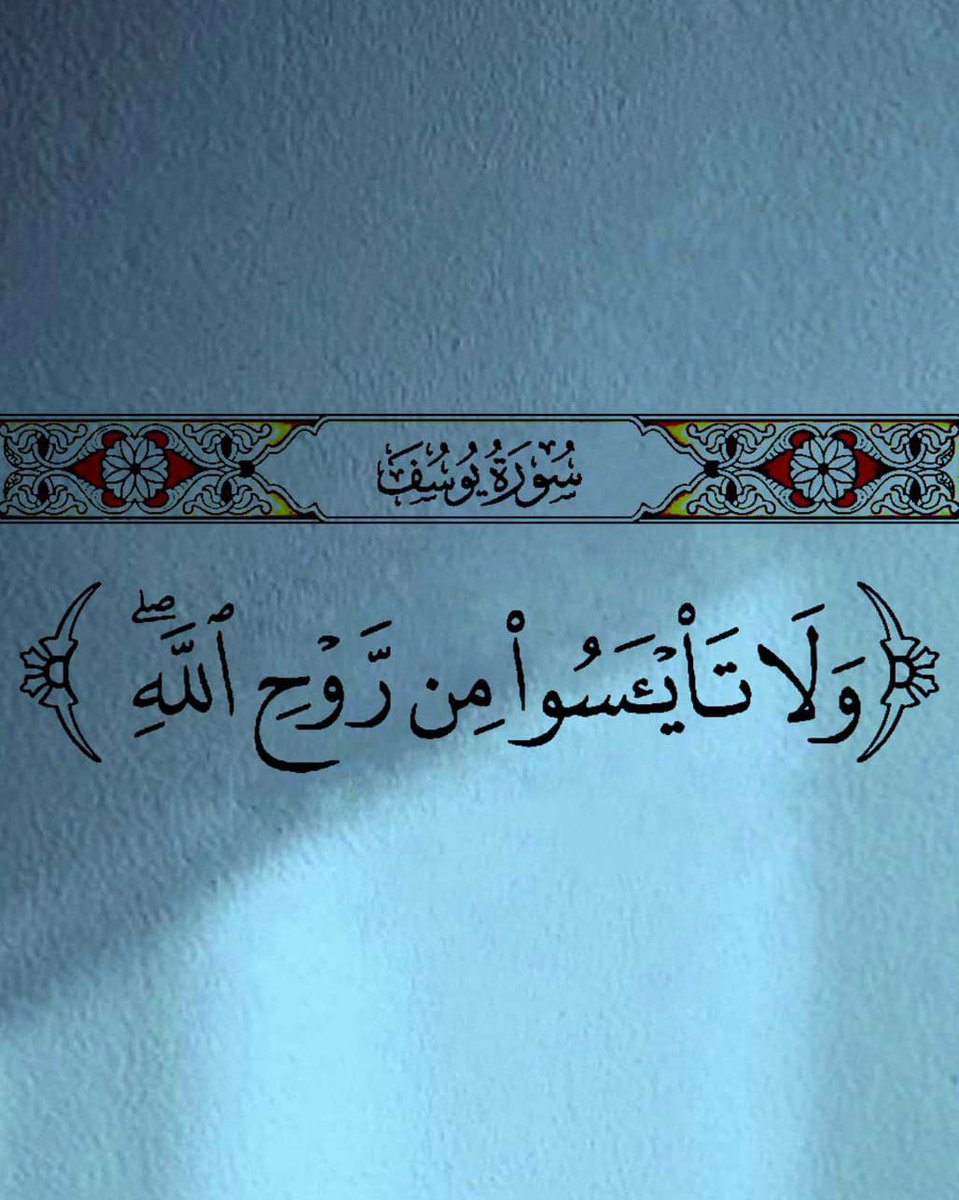 سُورَةُ يُوسُفَ
وَلَا تَا۟يْـَٔسُوا۟ مِن رَّوْحِ ٱللَّهِ ۖ